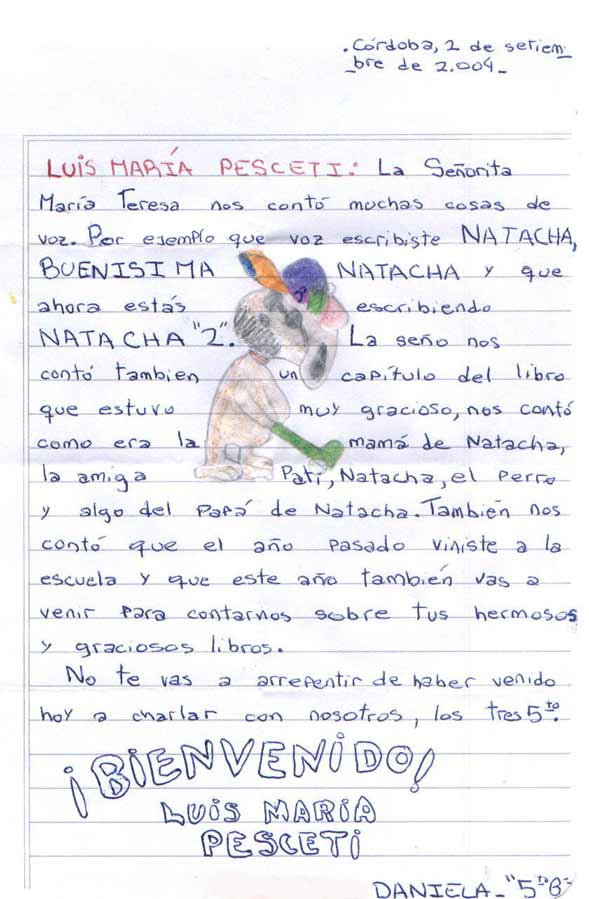 .Córdoba, 2 de setiem-
-bre de 2.004-
LUIS MARÍA PESCETI: La Señorita
María Teresa nos contó muchas cosas de
voz. Por ejemplo que voz escribiste NATACHA,
BUENISIMA NATACHA y que
ahora estás escribiendo
NATACHA "2". La seño nos
contó tambien un capítulo del libro
que estuvo muy gracioso, nos contó
como era la mamá de Natacha,
la amiga Pati, Natacha, el perro
y algo del Papá de Natacha. También nos
contó que el año pasado viniste a la
escuela y que este año también vas a
venir para contarnos sobre tus hermosos
y graciosos libros.
No te vas a arrepentir de haber venido
hoy a charlar con nosotros, los tres 5to.
¡BIENVENIDO!
LUIS MARIA
PESCETI
DANIELA- "5to B"